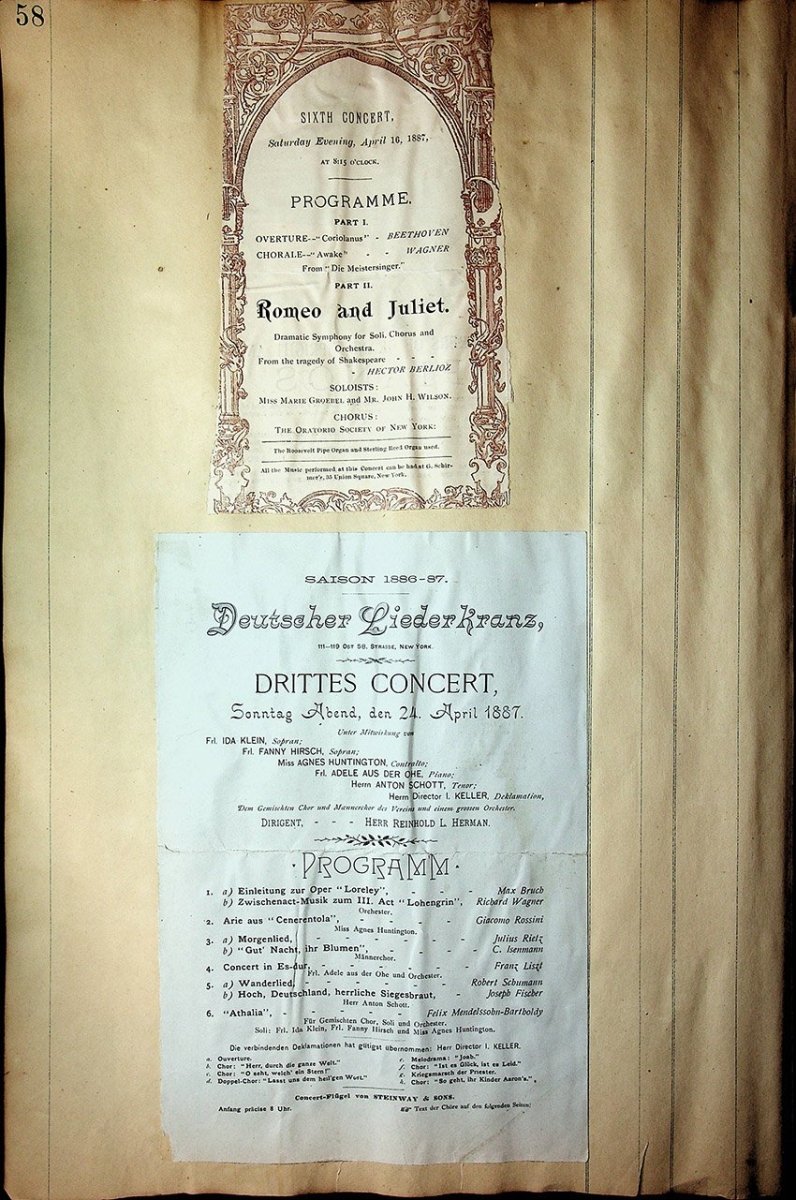 58
SIXTH CONCERT,
Saturday Evening, April 16, 1887,
AT 8:15 O'CLOCK.
PROGRAMME.
PART I.
OVERTURE--"Coriolanus" - BEETHOVEN
CHORALE--"Awake" - - WAGNER
From "Die Meistersinger."
PART II.
Romeo and Juliet.
Dramatic Symphony for Soli, Chorus and
Orchestra.
From the tragedy of Shakespeare - - -
- HECTOR BERLIOZ
SOLOISTS:
MISS MARIE GROEBEL and MR. JOHN H. WILSON.
CHORUS:
THE ORATORIO SOCIETY OF NEW YORK:
The Roosevelt Pipe Organ and Sterling Reed Organ used.
All the Music performed at this Concert can be had at G. Schir-
mer's, 35 Union Square, New York.
SAISON 1886-87.
Deutscher Liederkranz,
111-119 OST 58. STRASSE, NEW YORK.
DRITTES CONCERT,
Sonntag Abend, den 24. April 1887.
Unter Mitwirkung von
Frl. IDA KLEIN, Sopran;
Frl. FANNY HIRSCH, Sopran;
Miss AGNES HUNTINGTON, Contralto;
Frl. ADELE AUS DER OHE, Piano;
Herrn ANTON SCHOTT, Tenor;
Herrn Director I. KELLER, Deklamation,
Dem Gemischten Chor und Mannerchor des Vereins und einem grossen Orchester.
DIRIGENT, - - - HERR REINHOLD L. HERMAN.
PROGRAMM
1. a) Einleitung zur Oper "Loreley", - - - Max Bruch
b) Zwischenact-Musik zum III. Act "Lohengrin", Richard Wagner
Orchester.
2. Arie aus "Cenerentola", - - - - Giacomo Rossini
Miss Agnes Huntington.
3. a) Morgenlied, - - - - - Julius Rietz
b) "Gut' Nacht, ihr Blumen", - - - - C. Isenmann
Männerchor.
4. Concert in Es-dur, - - - - - Franz Liszt
Frl. Adele aus der Ohe und Orchester.
5. a) Wanderlied, - - - - - Robert Schumann
b) Hoch, Deutschland, herrliche Siegesbraut, - Joseph Fischer
Herr Anton Schott.
6. "Athalia", - - - - - Felix Mendelssohn-Bartholdy
Für Gemischten Chor, Soli und Orchester.
Soli: Frl. Ida Klein, Frl. Fanny Hirsch und Miss Agnes Huntington.
Die verbindenden Deklamationen hat gütigst übernommen: Herr Director I. KELLER.
a. Ouverture.
b. Chor: "Herr, durch die ganze Welt."
c. Chor: "O seht, welch' ein Stern!"
d. Doppel-Chor: "Lasst uns dem heil'gen Wort."
e. Melodrama: "Joab."
f. Chor: "Ist es Glück, ist es Leid."
g. Kriegsmarsch der Priester.
h. Chor: "So geht, ihr Kinder Aaron's."
Concert-Flügel von STEINWAY & SONS.
Anfang präcise 8 Uhr. ☞ Text der Chöre auf den folgenden Seiten!